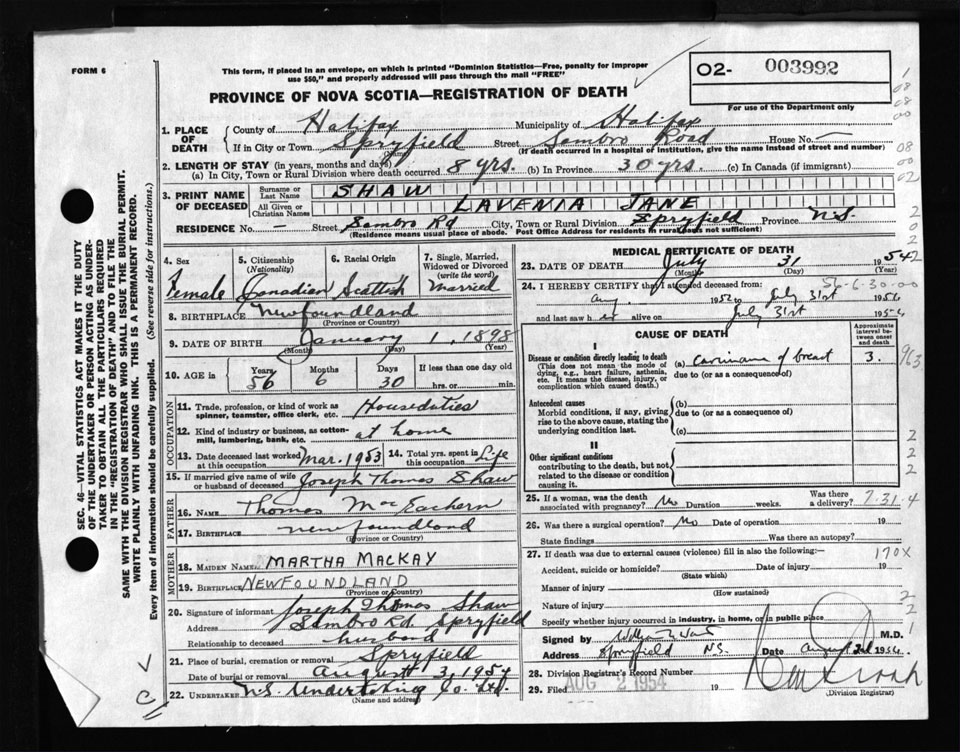 FORM 6
This form, if placed in an envelope, on which is printed "Dominion Statistics—Free, penalty for improper
use $50," and properly addressed will pass through the mail "FREE"
PROVINCE OF NOVA SCOTIA—REGISTRATION OF DEATH
02- 003992
For use of the Department only
1. PLACE OF DEATH
County of Halifax Municipality of Halifax
If in City or Town Spryfield Street Sembro Road House No. —
(If death occurred in a hospital or institution, give the name instead of street and number)
2. LENGTH OF STAY (in years, months and days)
(a) In City, Town or Rural Division where death occurred 8 yrs. (b) In Province 30 yrs. (c) In Canada (if immigrant)
3. PRINT NAME OF DECEASED
Surname or Last Name SHAW
All Given or Christian Names LAVENIA JANE
RESIDENCE No. — Street Sembro Rd City, Town or Rural Division Spryfield Province N.S.
(Residence means usual place of abode. Post Office Address for residents in rural areas not sufficient)
4. Sex Female
5. Citizenship (Nationality) Canadian
6. Racial Origin Scottish
7. Single, Married, Widowed or Divorced (write the word) Married
8. BIRTHPLACE Newfoundland
(Province or Country)
9. DATE OF BIRTH January 1, 1898
(Month) (Day) (Year)
10. AGE in Years 56 Months 6 Days 30 If less than one day old hrs. or min.
OCCUPATION
11. Trade, profession, or kind of work as spinner, teamster, office clerk, etc. Houseduties
12. Kind of industry or business, as cotton-mill, lumbering, bank, etc. at home
13. Date deceased last worked at this occupation Mar. 1953
14. Total yrs. spent in this occupation Life
15. If married give name of wife or husband of deceased Joseph Thomas Shaw
FATHER
16. NAME Thomas MacEachern
17. BIRTHPLACE Newfoundland
(Province or Country)
MOTHER
18. MAIDEN NAME MARTHA MACKAY
19. BIRTHPLACE NEWFOUNDLAND
(Province or Country)
20. Signature of informant Joseph Thomas Shaw
Address Sembro Rd Spryfield
Relationship to deceased husband
21. Place of burial, cremation or removal Spryfield
Date of burial or removal August 3, 1954
22. UNDERTAKER N.S. Undertaking Co. Ltd.
(Name and address)
MEDICAL CERTIFICATE OF DEATH
23. DATE OF DEATH July 31 1954
(Month) (Day) (Year)
24. I HEREBY CERTIFY that I attended deceased from:
Aug. 1952 to July 31st 1954
and last saw her alive on July 31st 1954
CAUSE OF DEATH
Approximate interval between onset and death
I
Disease or condition directly leading to death (a) carcinoma of breast 3.
(This does not mean the mode of dying, e.g., heart failure, asthenia, etc. It means the disease, injury, or complication which caused death.)
due to (or as a consequence of)
Antecedent causes
Morbid conditions, if any, giving rise to the above cause, stating the underlying condition last.
(b)
due to (or as a consequence of)
(c)
II
Other significant conditions
contributing to the death, but not related to the disease or condition causing it.
25. If a woman, was the death associated with pregnancy? No Duration weeks. Was there a delivery?
7-31-4
26. Was there a surgical operation? No Date of operation 19
State findings Was there an autopsy?
27. If death was due to external causes (violence) fill in also the following:—
170X
Accident, suicide or homicide? Date of injury 19
(State which)
Manner of injury
(How sustained)
Nature of injury
Specify whether injury occurred in industry, in home, or in public place
Signed by M.D.
Address Spryfield N.S. Date August 2nd 1954.
28. Division Registrar's Record Number
29. Filed AUG 2 1954 19
(Division Registrar)
SEC. 46—VITAL STATISTICS ACT MAKES IT THE DUTY
OF THE UNDERTAKER OR PERSON ACTING AS UNDER-
TAKER TO OBTAIN ALL THE PARTICULARS REQUIRED
IN THE "REGISTRATION OF DEATH" AND TO FILE THE
SAME WITH THE DIVISION REGISTRAR WHO SHALL ISSUE THE BURIAL PERMIT.
WRITE PLAINLY WITH UNFADING INK. THIS IS A PERMANENT RECORD.
Every item of information should be carefully supplied. (See reverse side for instructions.)